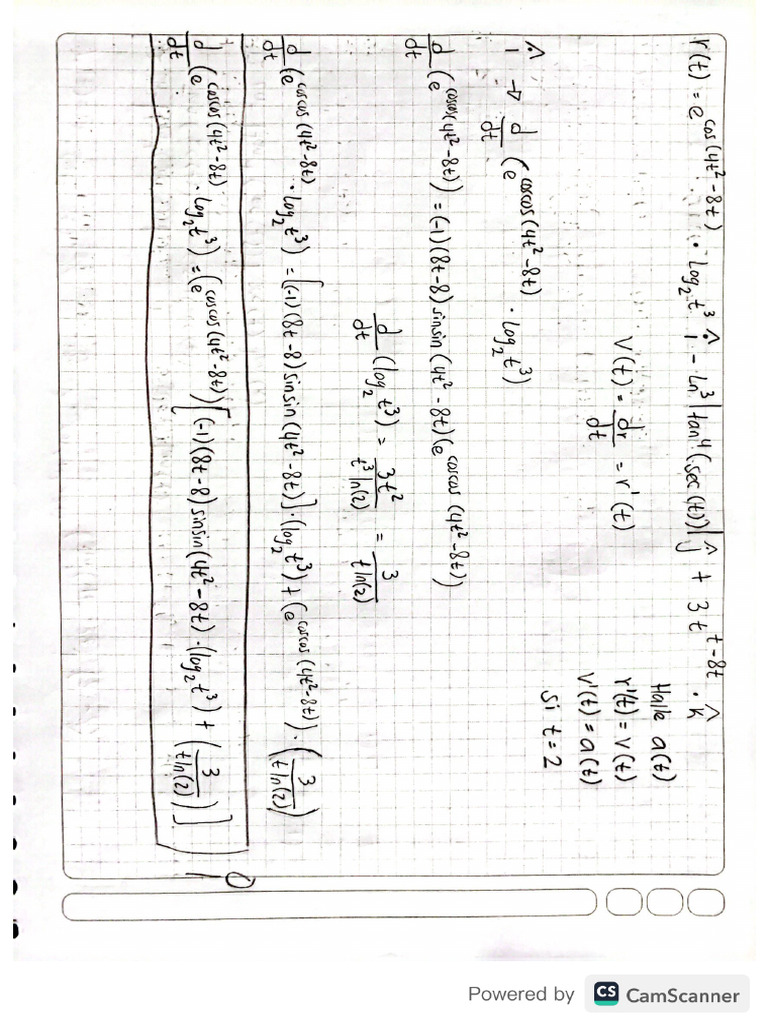 r(t) = e^cos(4t²-8t) · log₂t³ î - Ln³|tan⁴(sec(t))| ĵ + 3t^t-8t · k̂
Halle a(t)
V(t) = dr/dt = r'(t)
r'(t) = v(t)
v'(t) = a(t)
si t = 2
î → d/dt (e^coscos(4t²-8t) · log₂t³)
d/dt (e^coscos(4t²-8t)) = (-1)(8t-8)sinsin(4t²-8t)(e^coscos(4t²-8t))
d/dt (log₂t³) = 3t²/t³ln(2) = 3/tln(2)
d/dt (e^coscos(4t²-8t) · log₂t³) = [(-1)(8t-8)sinsin(4t²-8t)] · (log₂t³) + (e^coscos(4t²-8t)) · (3/tln(2))
d/dt (e^coscos(4t²-8t) · log₂t³) = (e^coscos(4t²-8t)) [(-1)(8t-8)sinsin(4t²-8t) · (log₂t³) + (3/tln(2))]
Powered by CS CamScanner